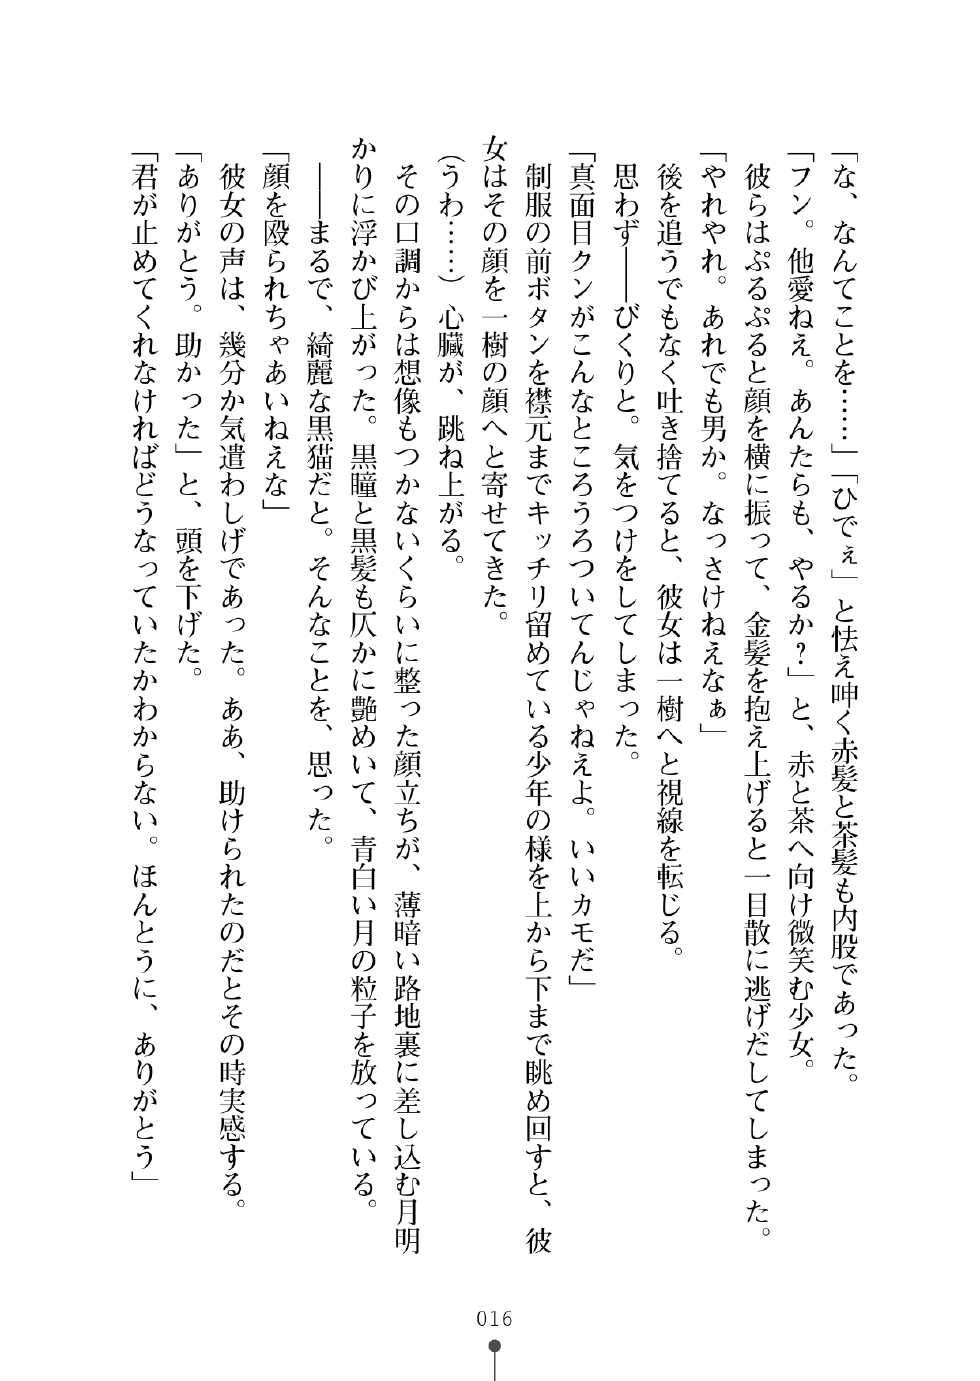 「な、なんてことを……」「ひでぇ」と怯え呻く赤髪と茶髪も内股であった。
「フン。他愛ねえ。あんたらも、やるか？」と、赤と茶へ向け微笑む少女。
　彼らはぷるぷると顔を横に振って、金髪を抱え上げると一目散に逃げだしてしまった。
「やれやれ。あれでも男か。なっさけねえなぁ」
　後を追うでもなく吐き捨てると、彼女は一樹へと視線を転じる。
　思わず――びくりと。気をつけをしてしまった。
「真面目クンがこんなところうろついてんじゃねえよ。いいカモだ」
　制服の前ボタンを襟元までキッチリ留めている少年の様を上から下まで眺め回すと、彼
女はその顔を一樹の顔へと寄せてきた。
（うわ……）心臓が、跳ね上がる。
　その口調からは想像もつかないくらいに整った顔立ちが、薄暗い路地裏に差し込む月明
かりに浮かび上がった。黒瞳と黒髪も仄かに艶めいて、青白い月の粒子を放っている。
　――まるで、綺麗な黒猫だと。そんなことを、思った。
「顔を殴られちゃあいねえな」
　彼女の声は、幾分か気遣わしげであった。ああ、助けられたのだとその時実感する。
「ありがとう。助かった」と、頭を下げた。
「君が止めてくれなければどうなっていたかわからない。ほんとうに、ありがとう」
016